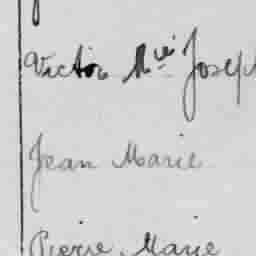 Victor Mie Joseph
Jean Marie
Pierre Marie